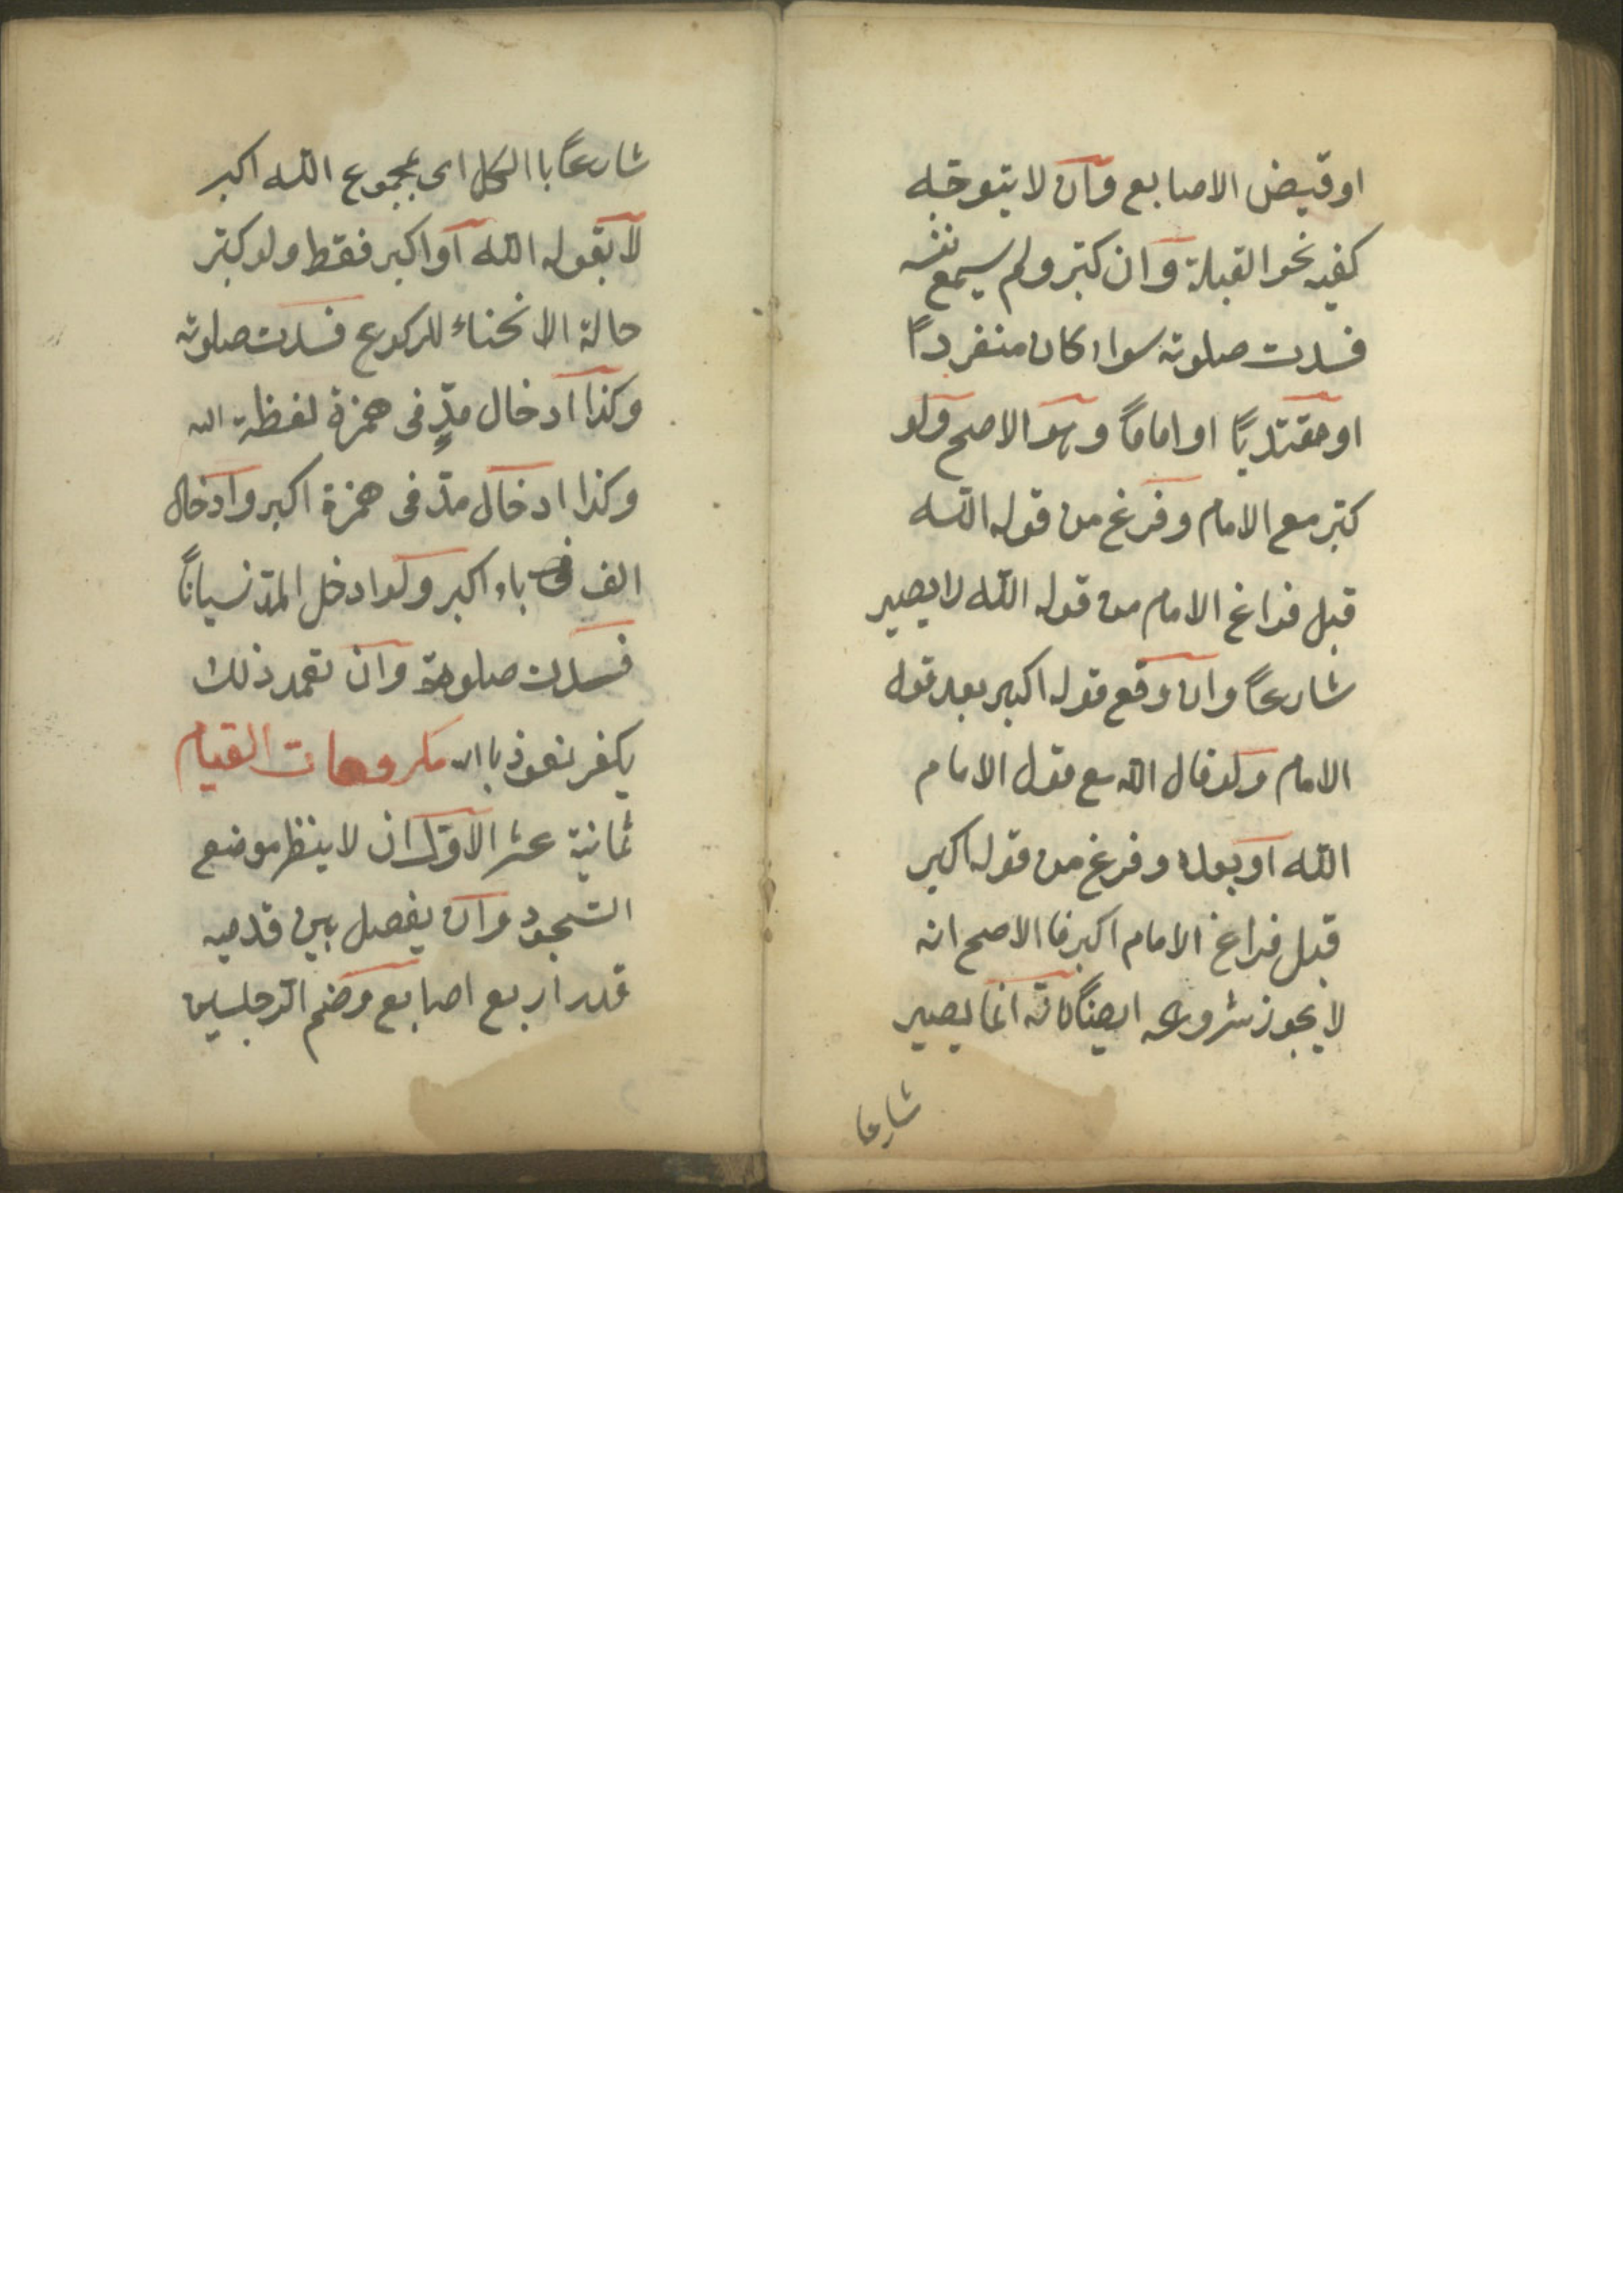 او قبض الاصابع وان لا يتوجّه
كفيه نحو القبلة وان كبّر ولم يسمع نفسه
فسدت صلوته سواء كان منفرداً
او مقتدياً او اماماً وهو الاصح ولو
كبّر مع الامام وفرغ من قوله اللّه
قبل فراغ الامام من قوله اللّه لا يصير
شارعاً وان وقع قوله اكبر بعد قول
الامام ولو قال اللّه مع قول الامام
اللّه او بعده وفرغ من قوله اكبر
قبل فراغ الامام اكبر فا الاصح انه
لا يجوز شروعه ايضاً لانّه انّما يصير
شارعا
شارعاً با الكل اى بمجموع اللّه اكبر
لا بقوله اللّه او اكبر فقط ولو كبّر
حالة الانحناء للركوع فسدت صلوته
وكذا ادخال مدٍّ فى همزة لفظة الله
وكذا ادخال مدّ فى همزة اكبر وادخال
الف فى باء اكبر ولو ادخل المدّ نسياناً
فسدت صلوته وان تعمد ذلك
يكفر نعوذ باالله مكروهات القيام
ثمانية عشر الاوّل ان لا ينظر موضع
السّجود وان يفصل بين قدميه
قدر اربع اصابع وضم الرّجلين